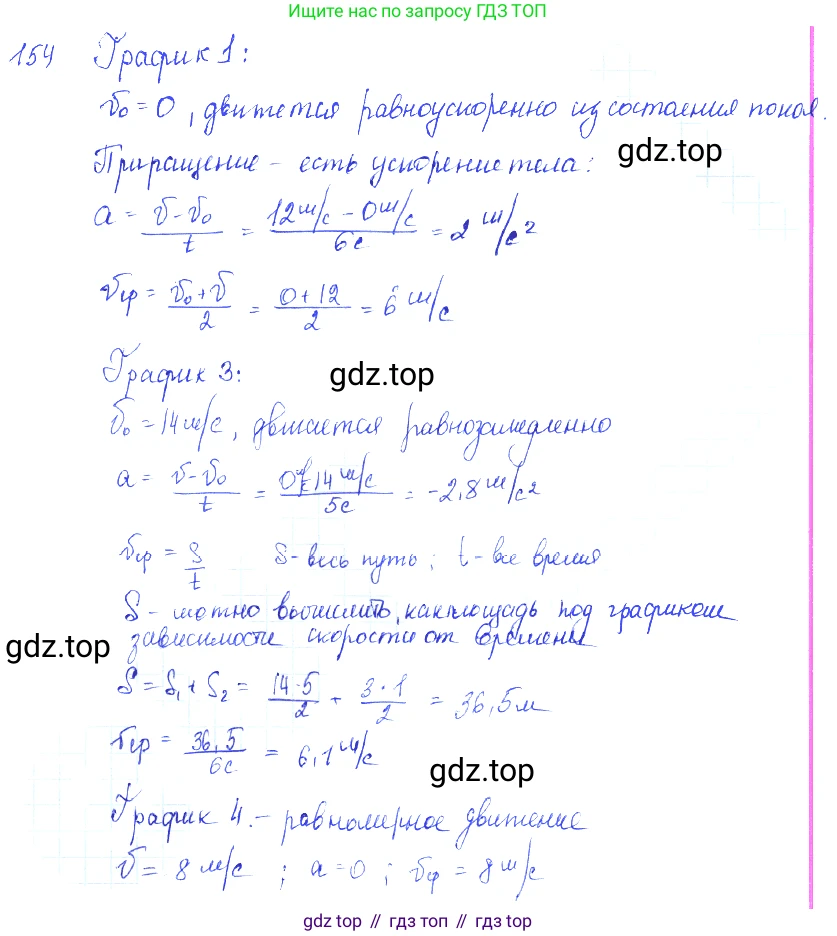 Ищите нас по запросу ГДЗ ТОП
154 График 1:
v₀ = 0, движется равноускоренно из состаения покоя.
gdz.top
Приращение - есть ускорение тела:
a = (v - v₀)/t = (12 м/с - 0 м/с)/6с = 2 м/с²
vср = (v₀ + v)/2 = (0 + 12)/2 = 6 м/с
График 3:
gdz.top
v₀ = 14 м/с, движется равнозамедленно
a = (v - v₀)/t = (0 м/с - 14 м/с)/5с = -2,8 м/с²
vср = S/t S - весь путь; t - все время
S - можно вычислить, как площадь под графиком
зависимости скорости от времени
gdz.top
S = S₁ + S₂ = (14·5)/2 + (3·1)/2 = 36,5 м
vср = 36,5/6с = 6,1 м/с
gdz.top
График 4. - равномерное движение
v = 8 м/с ; a = 0 ; vср = 8 м/с
gdz top // гдз топ // гдз top